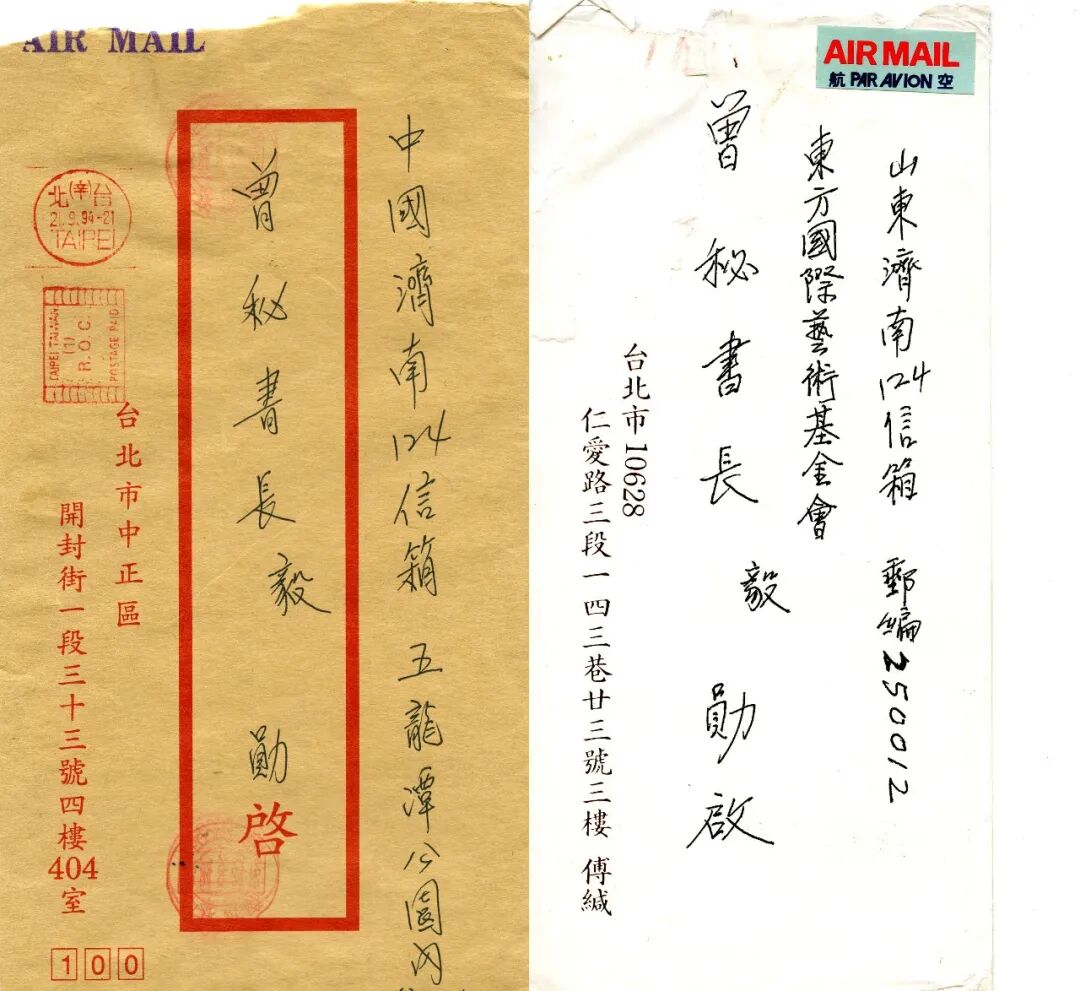 AIR MAIL
中國濟南124信箱 五龍潭公園內
曾秘書長毅勛啓
台(辛)北
21.9.94-21
TAIPEI
TAIPEI TAIWAN
(1)
R.O.C.
POSTAGE PAID
台北市中正區
開封街一段三十三號四樓404室
100
AIR MAIL
航 PAR AVION 空
山東濟南124信箱 郵編250012
東方國際藝術基金會
曾秘書長毅勛啟
台北市10628
仁愛路三段一四三巷廿三號三樓 傅緘